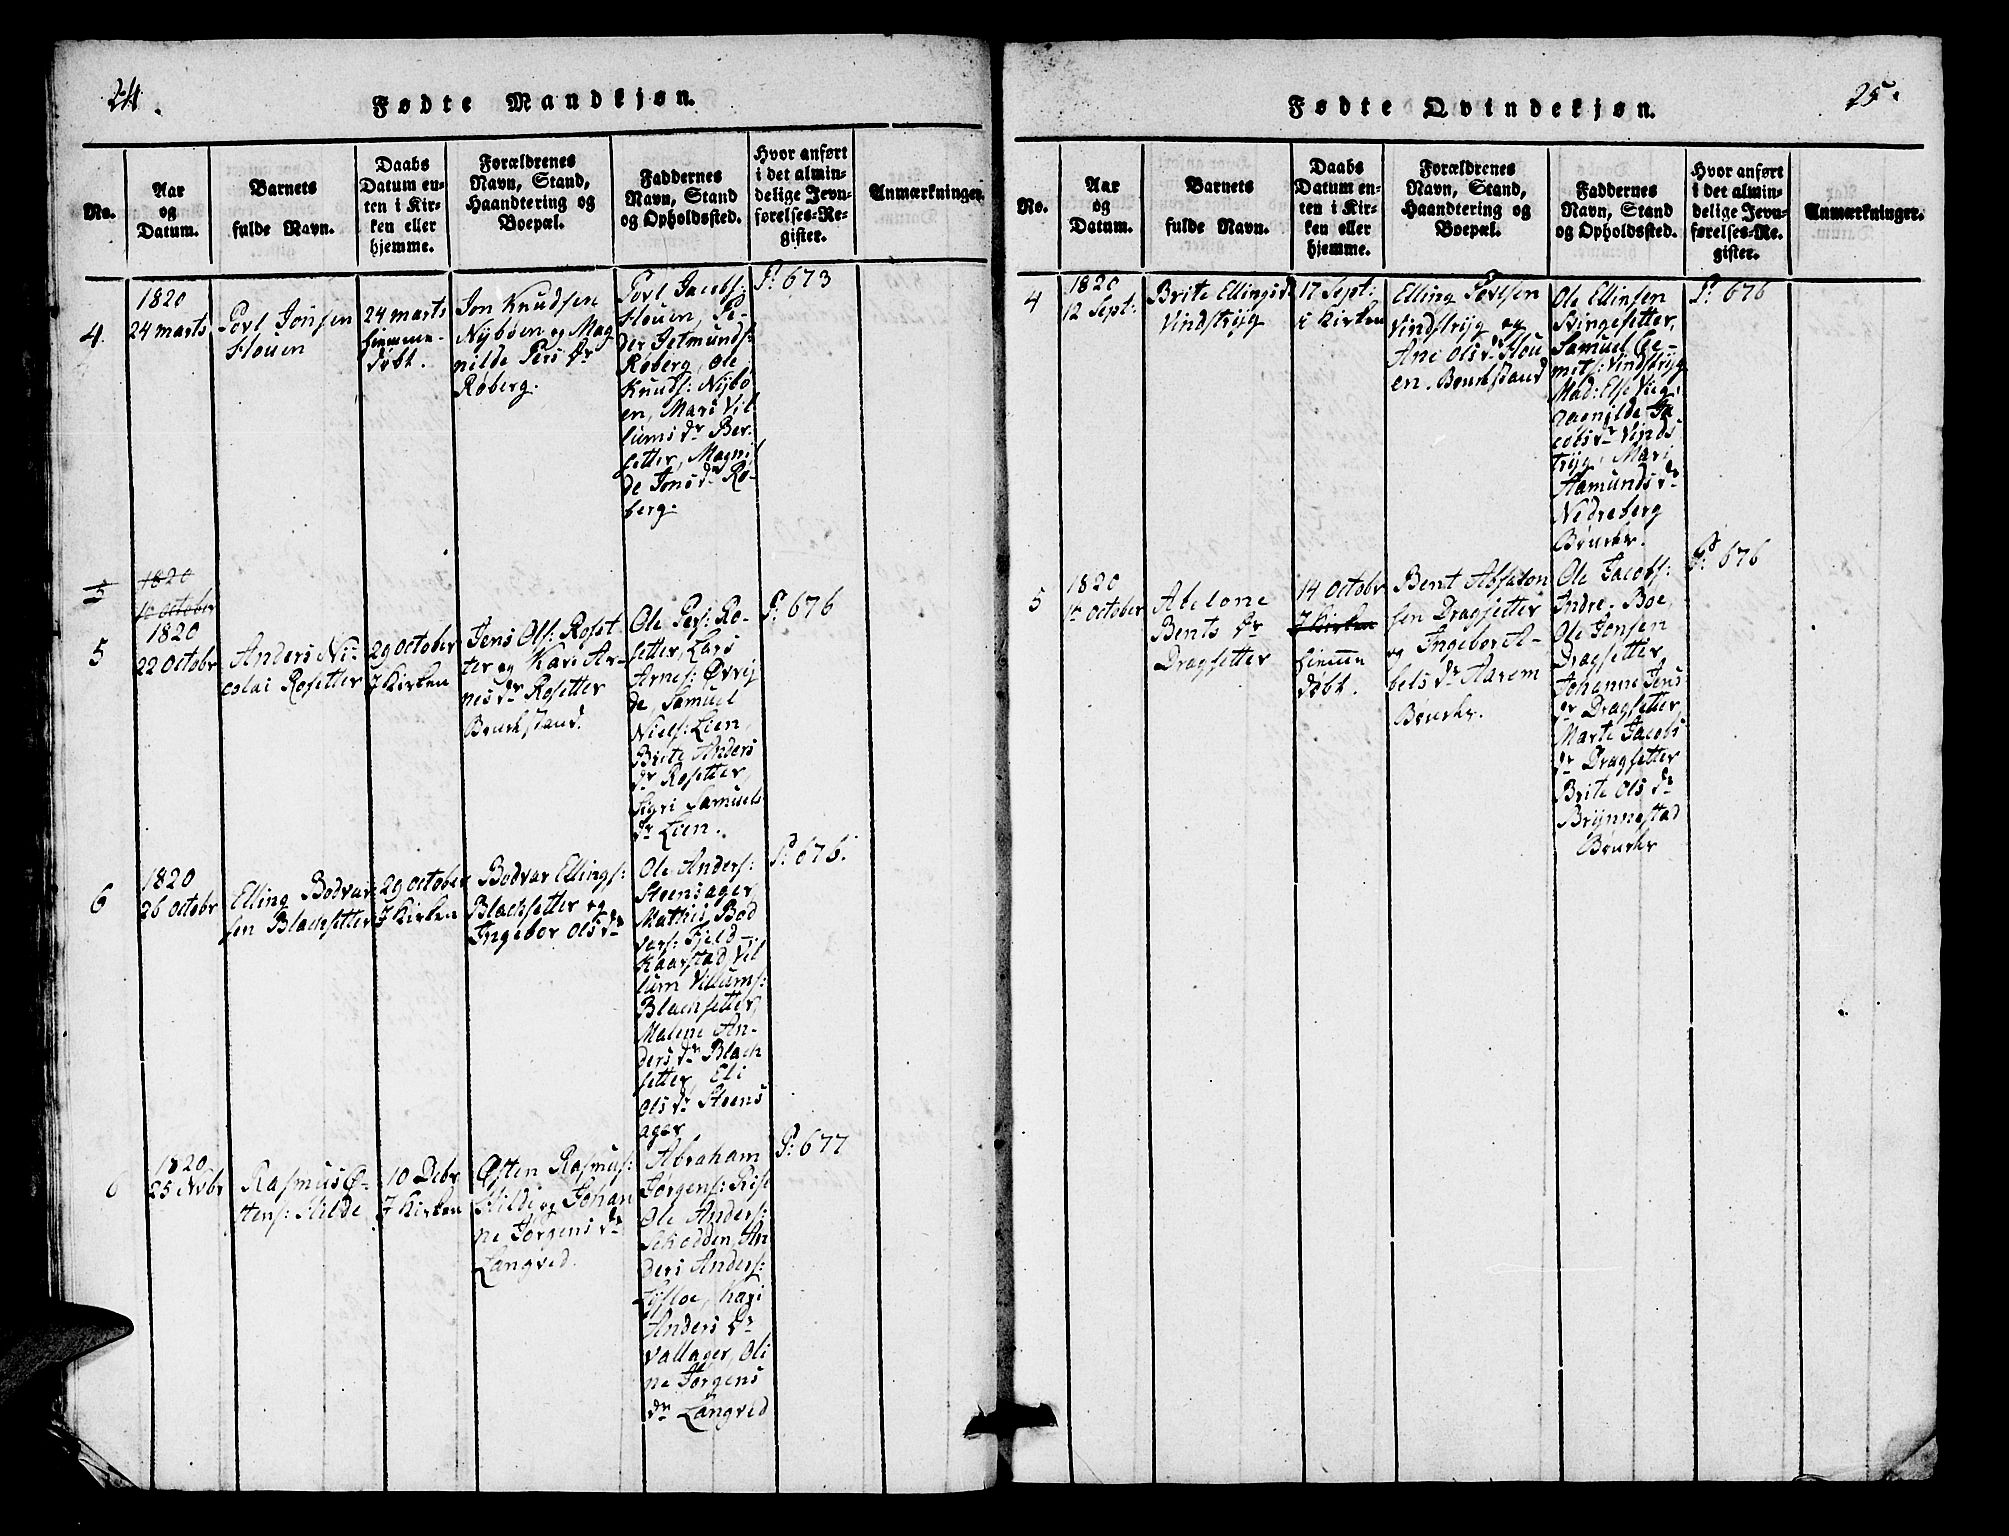 24.
Fødte Mandkjøn.
No.
Aar
og
Datum.
Barnets
fulde Navn.
Daabs
Datum en-
ten i Kir-
ken eller
hjemme.
Forældrenes
Navn, Stand,
Haandtering og
Boepæl.
Faddernes
Navn, Stand
og Opholdssted.
Hvor anført
i det almin-
delige Jevn-
førelses-Re-
gister.
Anmærkninger.
4.
1820
24 marts
Povl Jonsen
Flouen
24 marts
hiemme-
døbt.
Jon Knudsen
Nybøen og Mag
nilde Pers dr
Røberg.
Povl Jacobs:
Flouen, Pe-
der Jetmunds:
Røberg, Ole
Knuds: Nybø
en, Mari Vil
lums dr Ber-
setter, Magnil
de Jons dr Rø-
berg.
P: 673
5
1820
10 october
5
1820
22 octobr
Anders Ni-
colai Rosetter
29 october
I Kirken
Jens Ols: Roset
ter og Kari Ar-
nes dr Rosetter
Bnrkstand.
Ole Pers: Ro-
setter, Lars
Arnes: Øvrej
de, Samuel
Niels: Lien,
Brite Anders
dr Rosetter,
Sigri Samuels
dr Lien.
P: 676
6
1820
26 octobr
Elling Bodvar
sen Blachsetter
29 october
I Kirken
Bodvar Ellings:
Blachsetter og
Ingebor Ols dr
Ole Anders:
Steensager,
Mathis Bod
vars: Fjeld-
Kaarstad, Vil
lum Villums:
Blachsetter,
Malene An-
ders dr Blach
setter, Eli
Ols dr Steens
ager
P: 676.
6
1820
25 Novbr
Rasmus Ø-
stens: Hilde
10 Debr
I Kirken
Østen Rasmus:
Hilde og Johan
ne Jørgens dr
Langvid.
Abraham
Jørgens: Rise
Ole Anders:
Skodden, An
ders Anders:
Lysloe, Kari
Anders dr
Vallager, Oli
ne Jørgens
dr Langvid
P: 677
25.
Fødte Qvindekjøn.
No.
Aar
og
Datum.
Barnets
fulde Navn.
Daabs
Datum en-
ten i Kir-
ken eller
hjemme.
Forældrenes
Navn, Stand,
Haandtering og
Boepæl.
Faddernes
Navn, Stand
og Opholdssted.
Hvor anført
i det almin-
delige Jevn-
førelses-Re-
gister.
Anmærkninger.
4
1820
12 Sept:
Brite Ellings dr
Vindstryg
17 Sept:
i Kirken
Elling Povlsen
Vindstryg og
Ane Ols dr Flou
en. Bnrkstand
Ole Ellinsen
Svingesetter,
Samuel
Vindstryg
Mad: Else
Ragnilde Ja
cobs dr Vinds
tryg, Mari
Aamunds dr
Nedreberg
Bnrkr.
P: 676
5
1820
10 october
Abelone
Bents dr
Dragsetter
14 octobr
I Kirken
hiemme
døbt.
Bent Absalon
sen Dragsetter
og Ingebor A-
bels dr Aarem
Bnrkr.
Ole Jacobs:
Indre-Boe,
Ole Jonsen
Dragsetter,
Johanne Jens
dr Dragsetter,
Marte Jacobs
dr Dragsetter
Brite Ols dr
Brynnestad
Bnrkr
P: 676